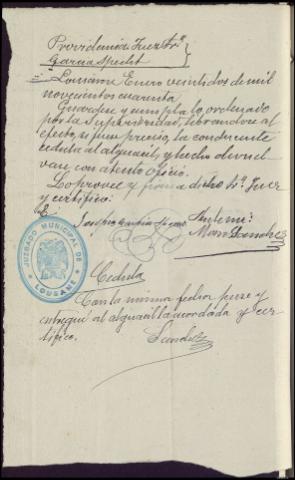 Providencia Juez Sr.
Garcia
Lousame Enero veintidos de mil
novecientos cuarenta
Guardese y cumpla lo ordenado
por la Superioridad, librandose al
efecto, si fuere preciso, la conducente
cedula al alguacil, y hecho devuel
van con atento oficio.
Lo provee y firma dicho Sr. Juez
y certifico.
Ante mi
JUZGADO MUNICIPAL DE
LOUSAME
Cedula
Con la misma fecha puse y
entregué al alguacil la acordada y cer
tifico.